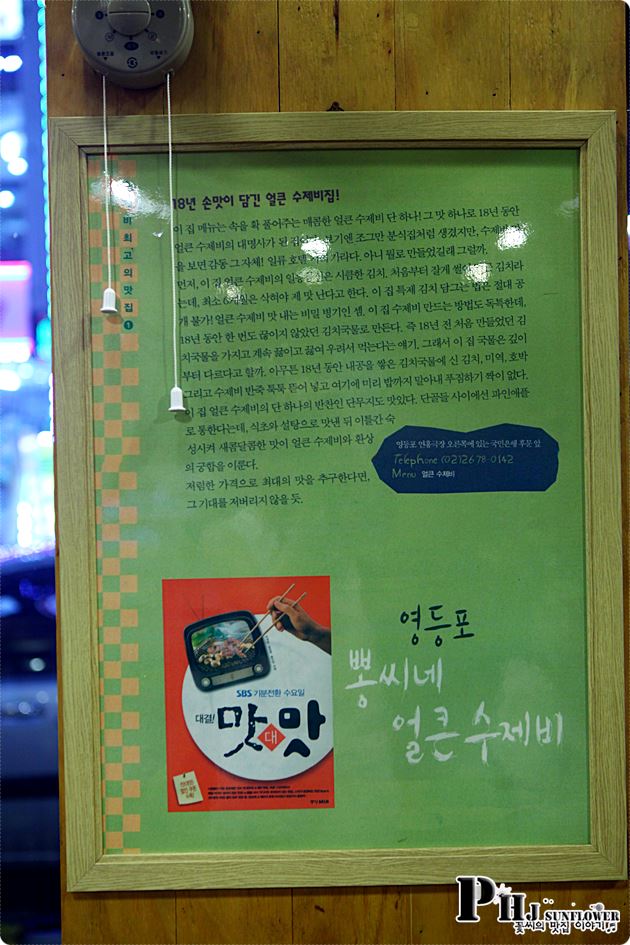 18년 손맛이 담긴 얼큰 수제비집!
이 집 메뉴는 속을 확 풀어주는 매콤한 얼큰 수제비 단 하나! 그 맛 하나로 18년 동안
얼큰 수제비의 대명사가 된 조그만 분식집처럼 생겼지만, 수제비
을 보면 감동 그 자체! 일류 호텔 기리다. 아니 뭘로 만들었길래 그럴까.
먼저, 이 집 얼큰 수제비의 일등 은 시큼한 김치. 처음부터 잘게 썰 김치라
는데, 최소 6개월은 삭혀야 제 맛 난다고 한다. 이 집 특제 김치 담그는 법은 절대 공
개 불가! 얼큰 수제비 맛 내는 비밀 병기인 셈. 이 집 수제비 만드는 방법도 독특한데,
18년 동안 한 번도 끊이지 않았던 김치국물로 만든다. 즉 18년 전 처음 만들었던 김
치국물을 가지고 계속 끓이고 끓여 우려서 먹는다는 얘기. 그래서 이 집 국물은 깊이
부터 다르다고 할까. 아무튼 18년 동안 내공을 쌓은 김치국물에 신 김치, 미역, 호박
그리고 수제비 반죽 뚝뚝 뜯어 넣고 여기에 미리 밥까지 말아내 푸짐하기 짝이 없다.
이 집 얼큰 수제비의 단 하나의 반찬인 단무지도 맛있다. 단골들 사이에선 파인애플
로 통한다는데, 식초와 설탕으로 맛낸 뒤 이틀간 숙
성시켜 새콤달콤한 맛이 얼큰 수제비와 환상
의 궁합을 이룬다.
저렴한 가격으로 최대의 맛을 추구한다면,
그 기대를 저버리지 않을 듯.
영등포 연흥극장 오른쪽에 있는 국민은행 후문 앞
Telephone (02)2678-0142
Menu 얼큰 수제비
비 최고의 맛집 1
SBS 기분전환 수요일
대결!
맛 대 맛
영등포
뽕씨네
얼큰 수제비
PHJ SUNFLOWER
꽃씨의 맛집 이야기